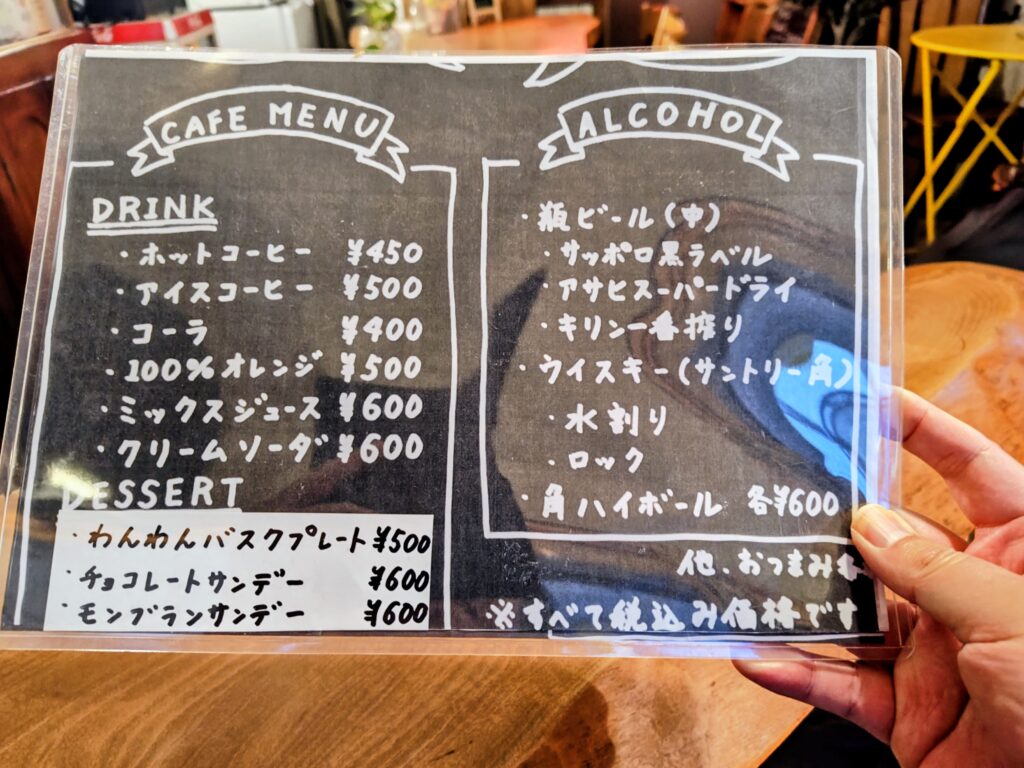 CAFE MENU
DRINK
・ホットコーヒー ¥450
・アイスコーヒー ¥500
・コーラ ¥400
・100%オレンジ ¥500
・ミックスジュース ¥600
・クリームソーダ ¥600
DESSERT
・わんわんバスクプレート ¥500
・チョコレートサンデー ¥600
・モンブランサンデー ¥600
ALCOHOL
・瓶ビール(中)
・サッポロ黒ラベル
・アサヒスーパードライ
・キリン一番搾り
・ウイスキー(サントリー角)
・水割り
・ロック
・角ハイボール 各¥600
他、おつまみ
※すべて税込み価格です